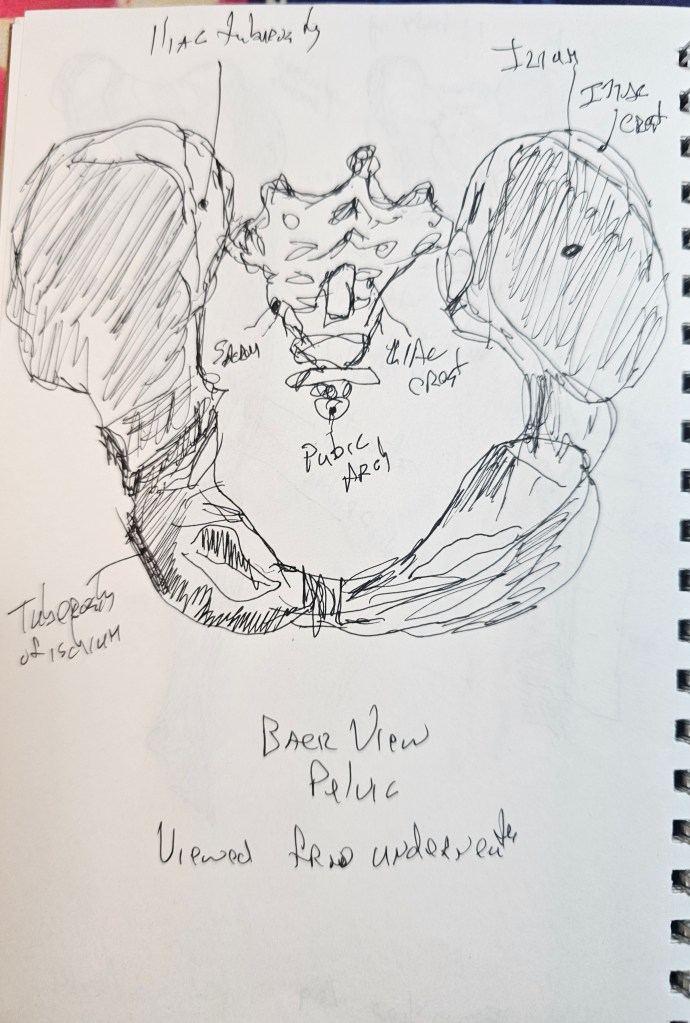 Iliac tuberosity
Ilium
Iliac
Crest
Sacrum
Iliac
Crest
Pubic
Arch
Tuberosity
of ischium
Baer View
Pelvic
Viewed from underneath